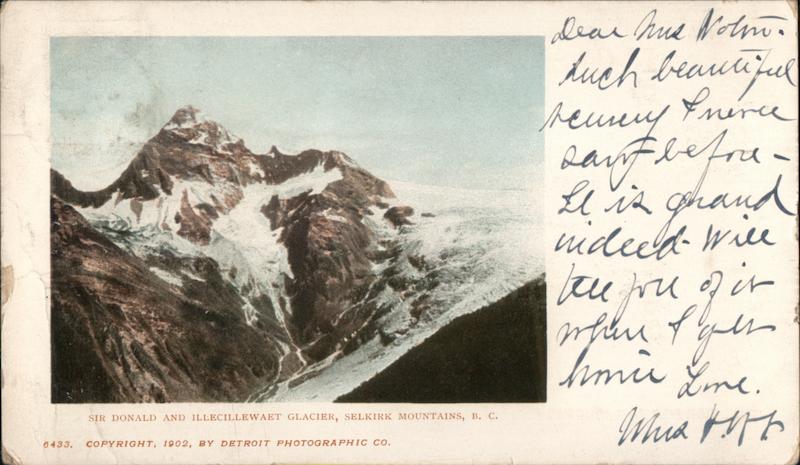 Dear Mrs
Such beautiful
scenery I never
saw before -
It is grand
indeed - Will
tell you of it
when I get
home Love.
Mrs
SIR DONALD AND ILLECILLEWAET GLACIER, SELKIRK MOUNTAINS, B. C.
6433. COPYRIGHT, 1902, BY DETROIT PHOTOGRAPHIC CO.